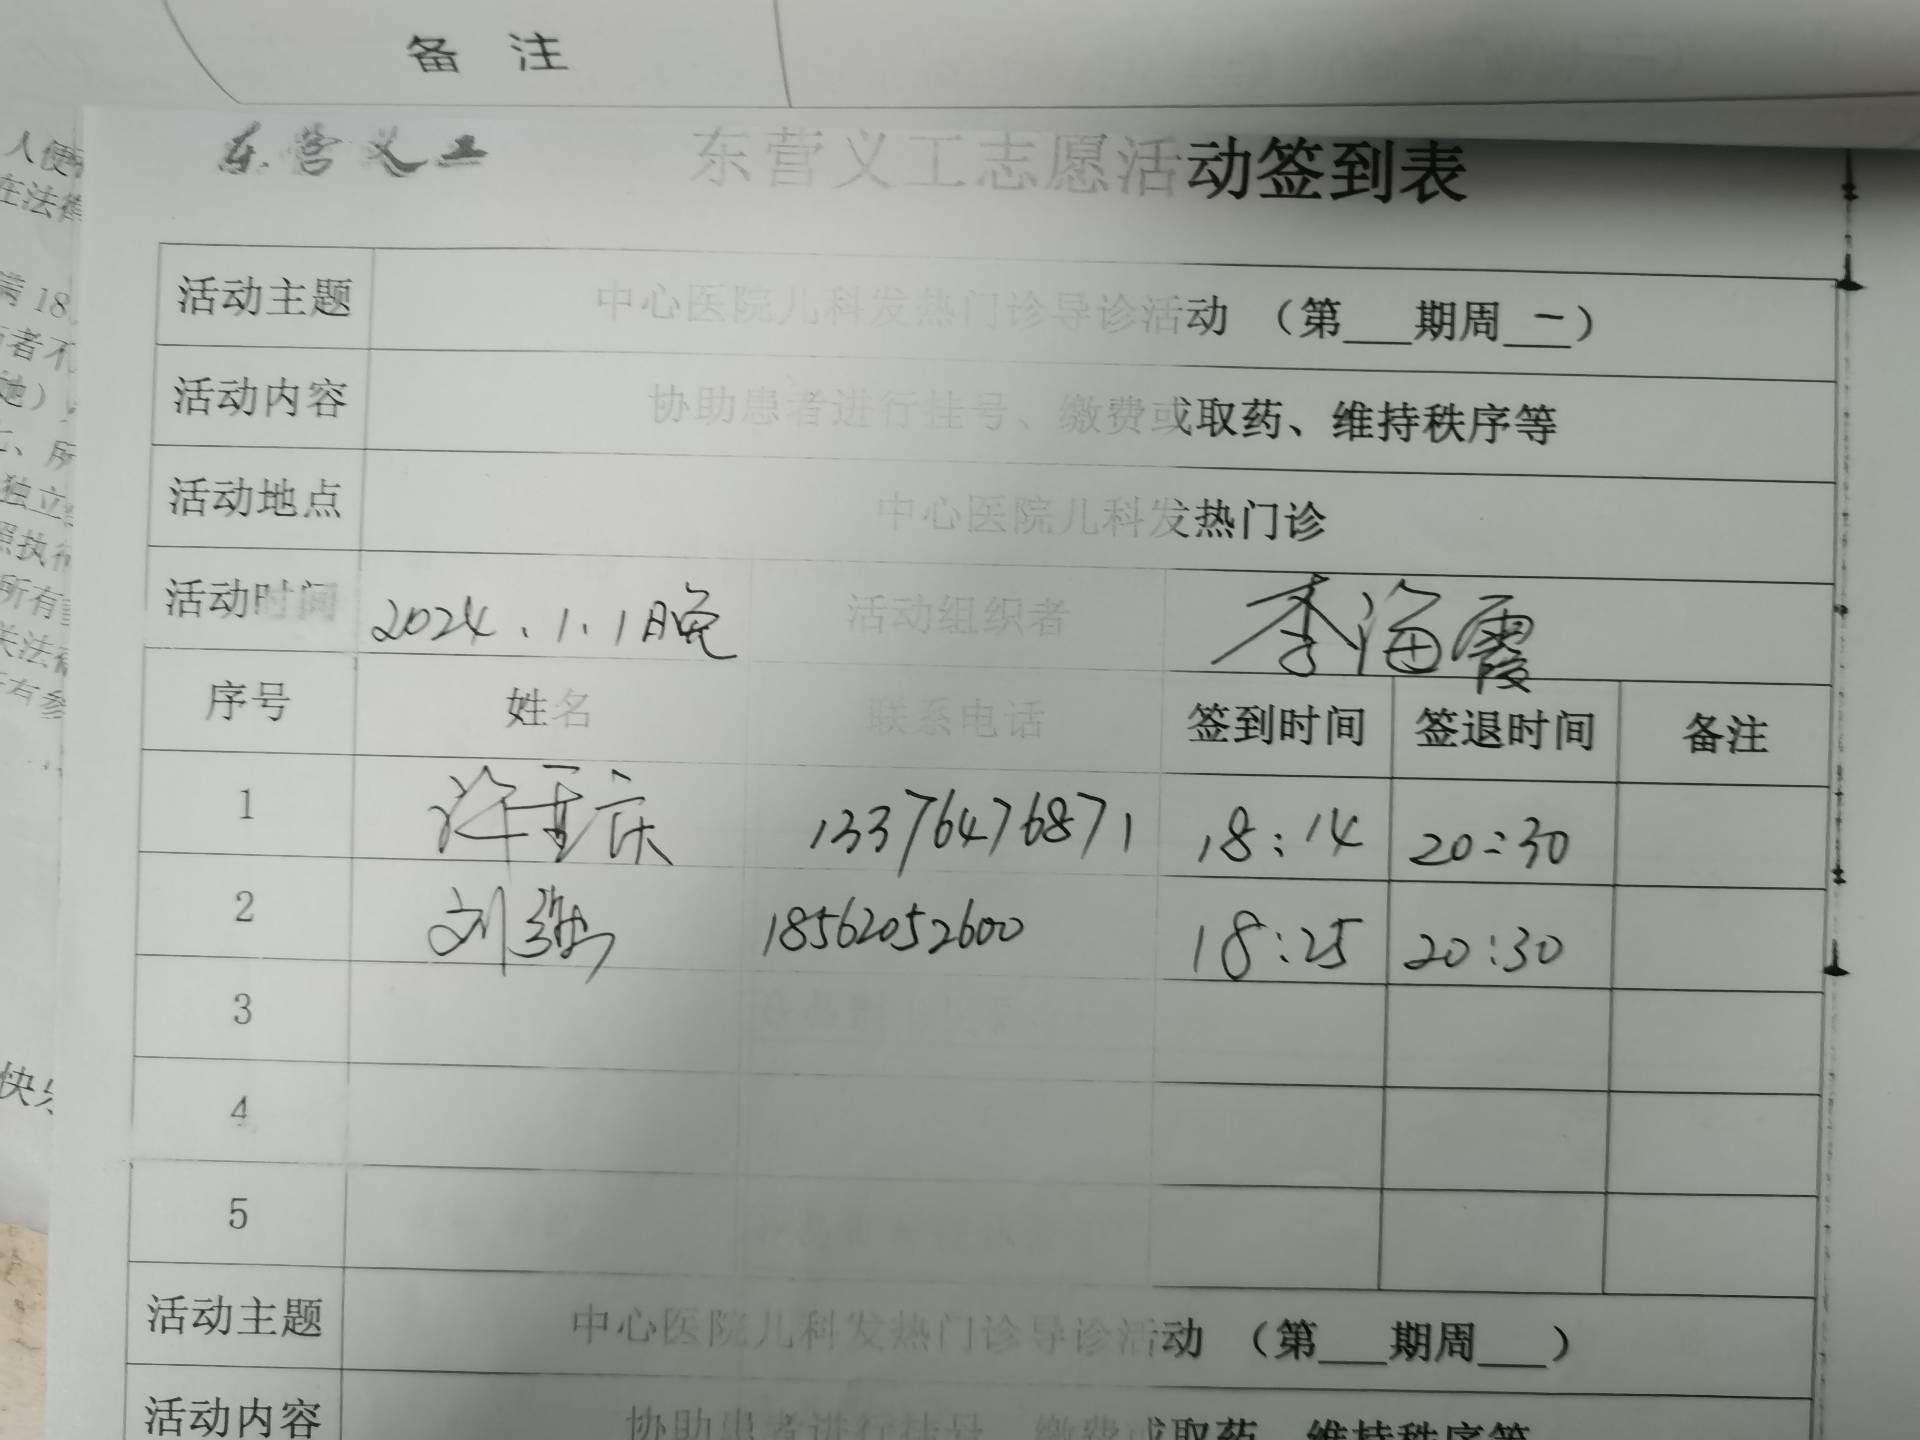 备 注
人便
在法律
满 18
者不
她）
、所
独立
照执行
所有
关法
快乐
东营义工
东营义工志愿活动签到表
活动主题 中心医院儿科发热门诊导诊活动 （第___期周 一）
活动内容 协助患者进行挂号、缴费或取药、维持秩序等
活动地点 中心医院儿科发热门诊
活动时间 2024.1.1晚 活动组织者 李海霞
序号 姓名 联系电话 签到时间 签退时间 备注
1 许 庆 13376476871 18:14 20:30
2 刘 18562052600 18:25 20:30
3
4
5
活动主题 中心医院儿科发热门诊导诊活动 （第___期周___）
活动内容 协助患者进行挂号、缴费或取药、维持秩序等